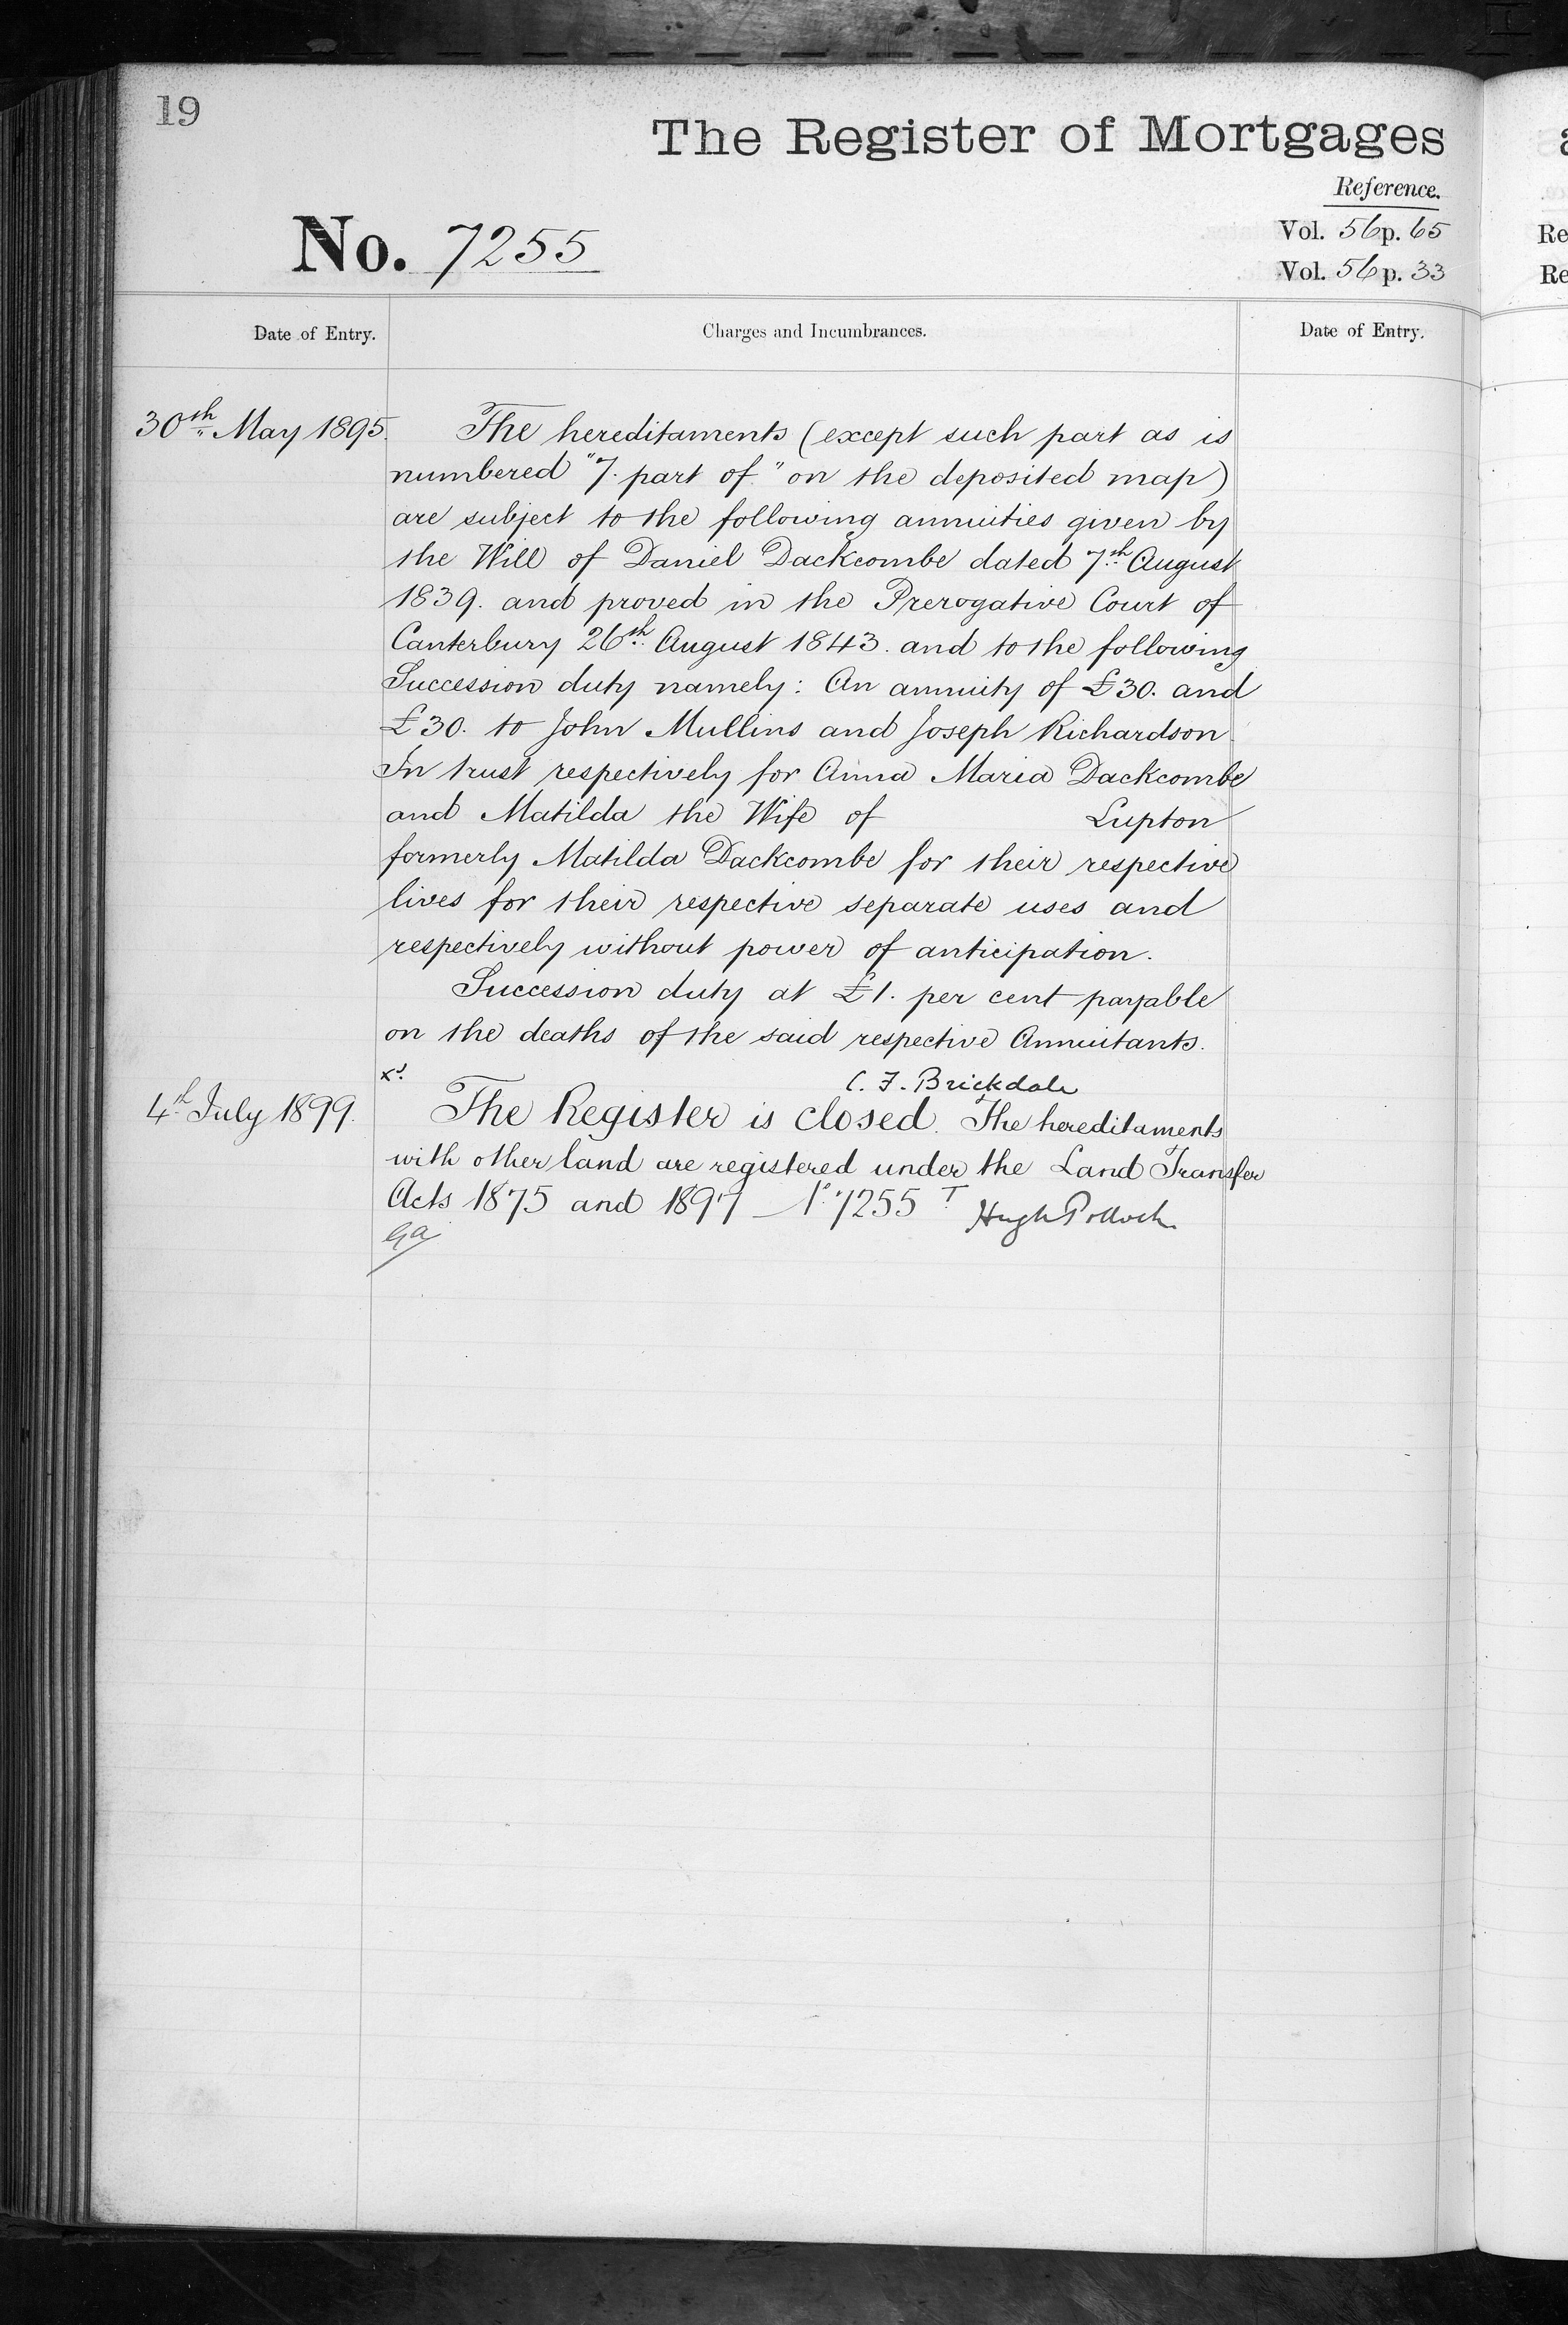 19
The Register of Mortgages
Reference.
No. 7255
Vol. 56 p. 65
Vol. 56 p. 33
Re
Re
Date of Entry.
Charges and Incumbrances.
Date of Entry.
30th May 1895.
The hereditaments (except such part as is
numbered "7. part of." on the deposited map)
are subject to the following annuities given by
the Will of Daniel Dackcombe dated 7th August
1839. and proved in the Prerogative Court of
Canterbury 26th August 1843. and to the following
Succession duty namely: An annuity of £30. and
£30. to John Mullins and Joseph Richardson
In trust respectively for Anna Maria Dackcombe
and Matilda the Wife of Lupton
formerly Matilda Dackcombe for their respective
lives for their respective separate uses and
respectively without power of anticipation.
Succession duty at £1. per cent payable
on the deaths of the said respective Annuitants.
C. F. Brickdale
4th July 1899.
The Register is closed. The hereditaments
with other land are registered under the Land Transfer
Acts 1875 and 1897 No 7255 T Hugh Pollock